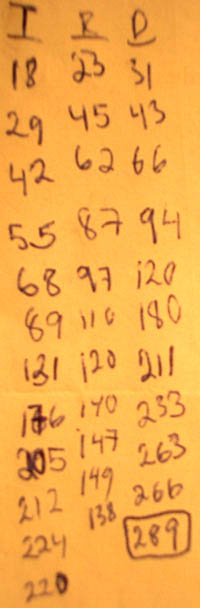 I R D
18 23 31
29 45 43
42 62 66
55 87 94
68 97 120
89 110 180
131 120 211
176 140 233
205 147 263
212 149 266
224 138 289
220